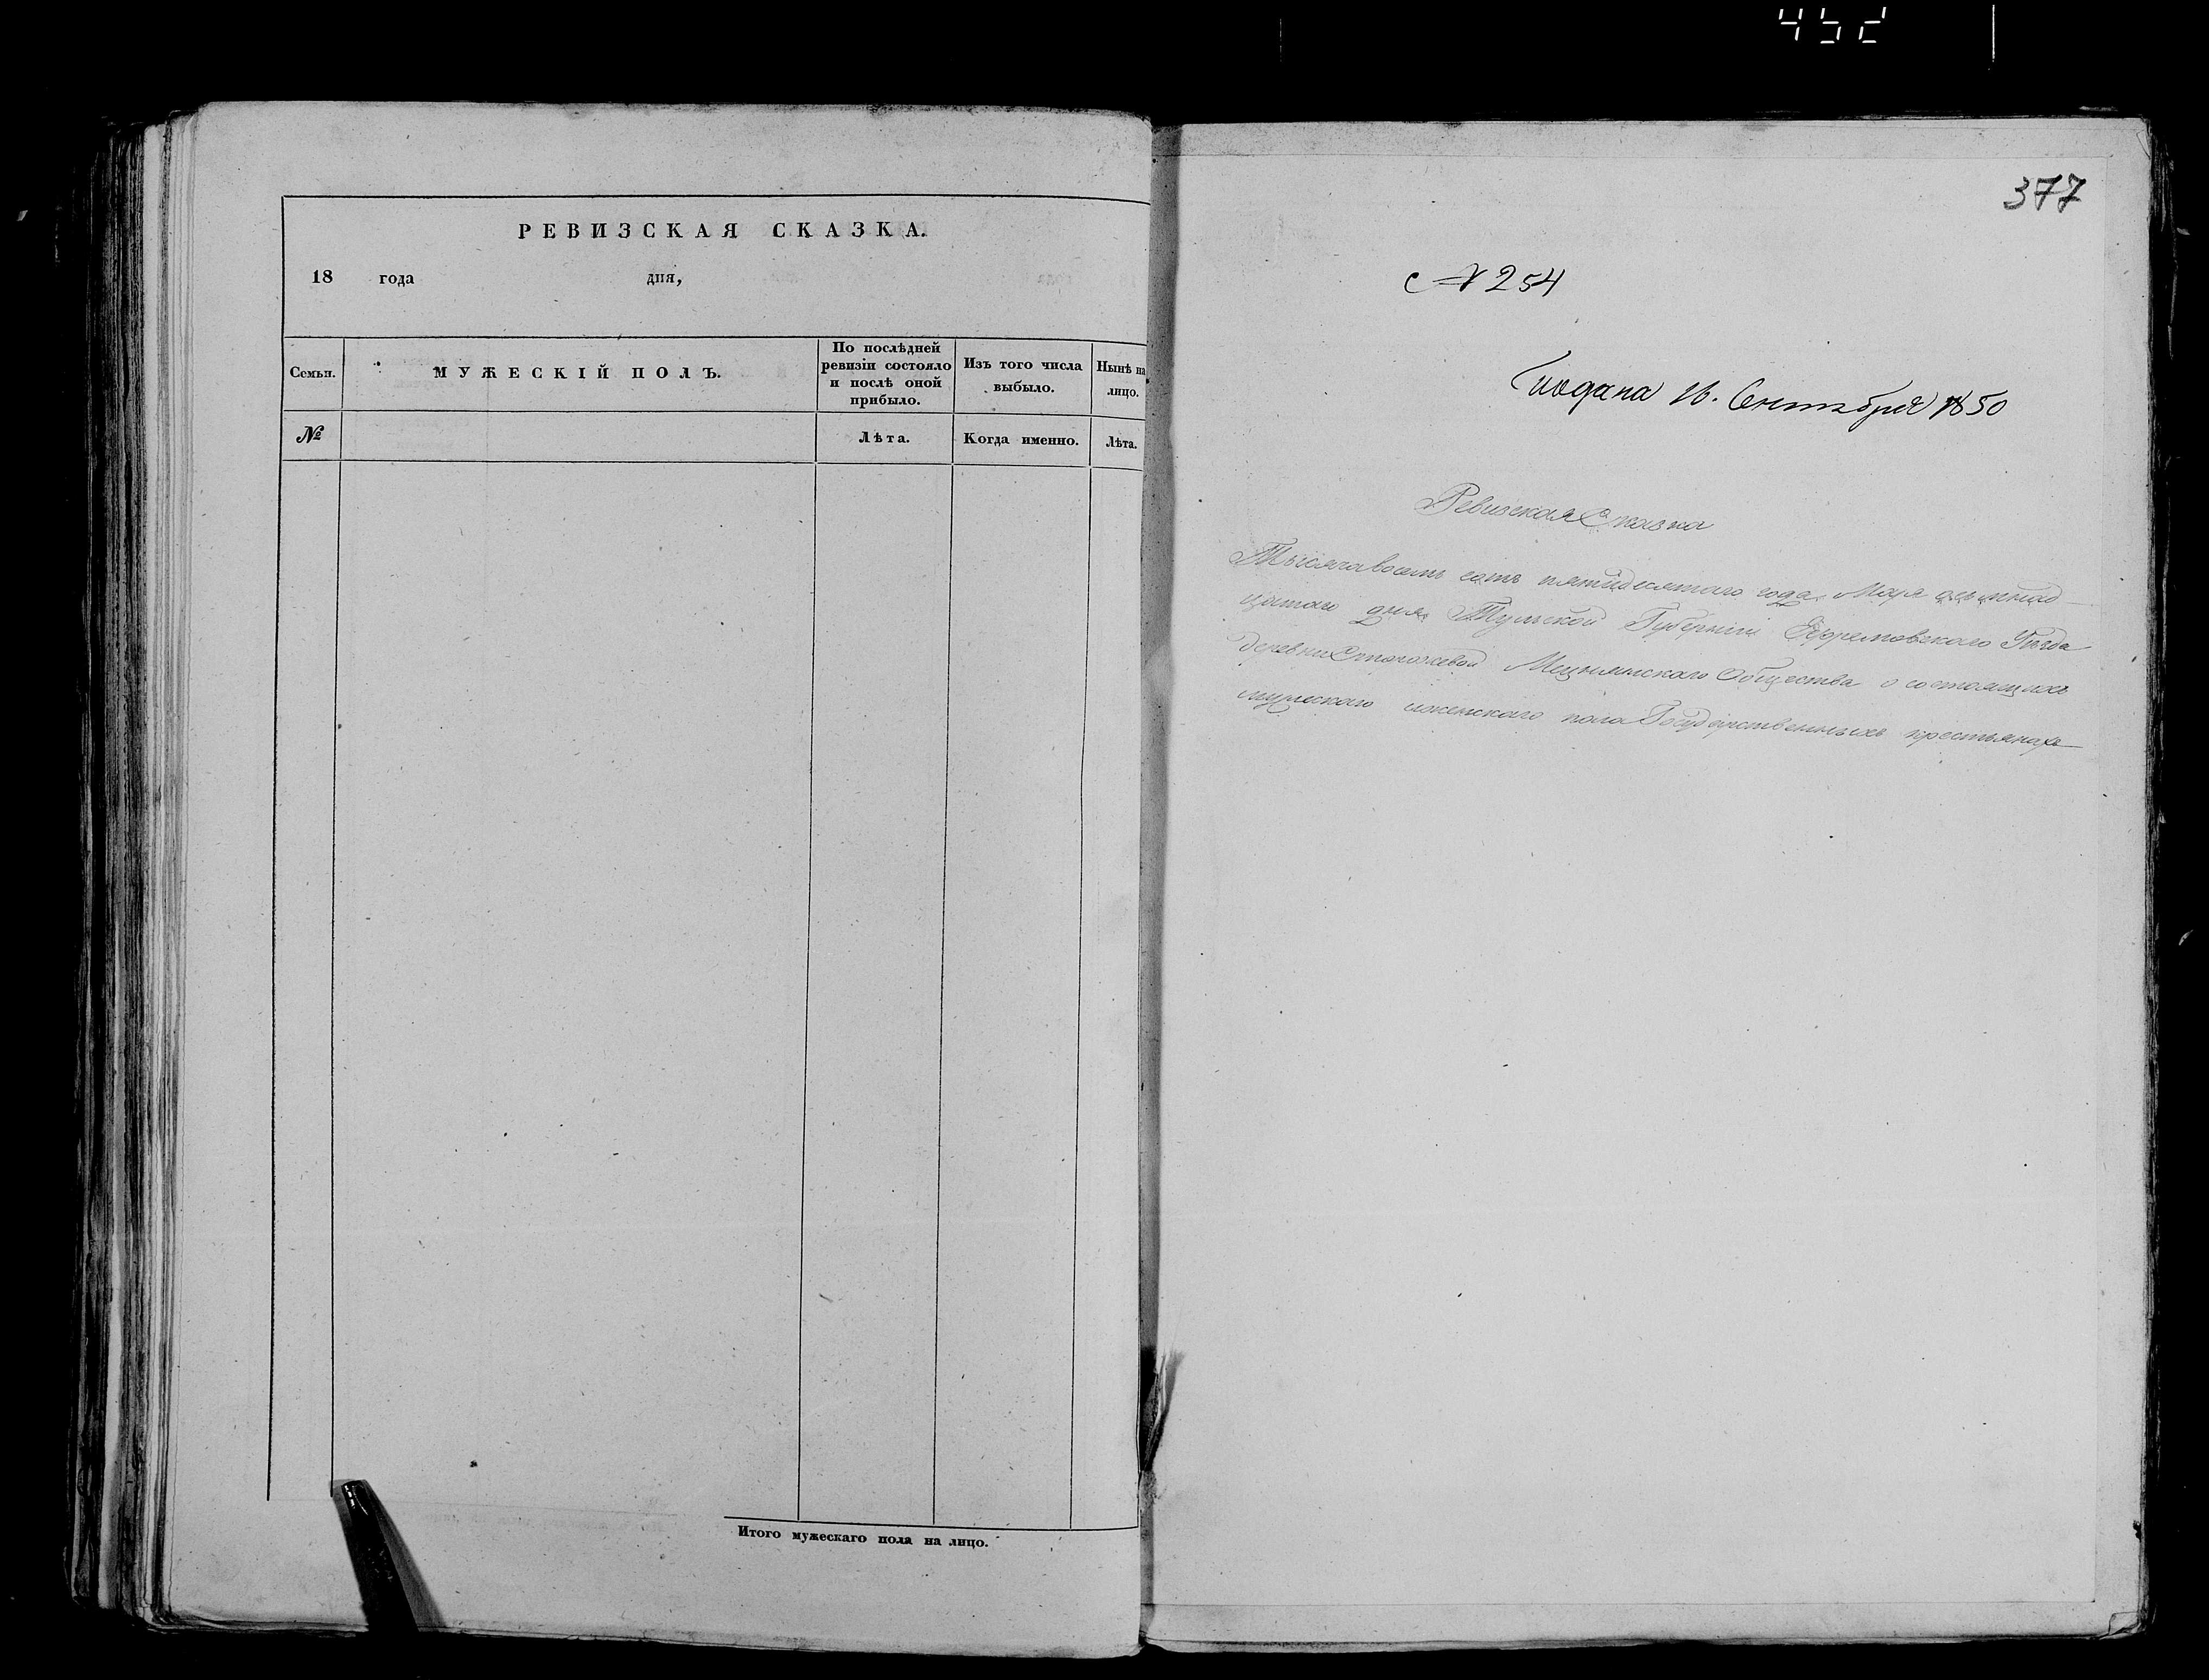 452
РЕВИЗСКАЯ СКАЗКА.
18 года дня,
Семьи.
МУЖЕСКІЙ ПОЛЪ.
По послѣдней
ревизіи состояло
и послѣ оной
прибыло.
Изъ того числа
выбыло.
Нынѣ на
лицо.
№
Лѣта.
Когда именно.
Лѣта.
Итого мужескаго пола на лицо.
377
№ 254
Подана 16. Сентября 1850
Ревизская Сказка
Тысяча восемь сотъ пятидесятаго года
цатаго дня Тульской Губерніи Ефремовскаго Уѣзда
деревни Сторожевой Общества о состоящихъ
мужескаго и женскаго пола Государственныхъ крестьянахъ